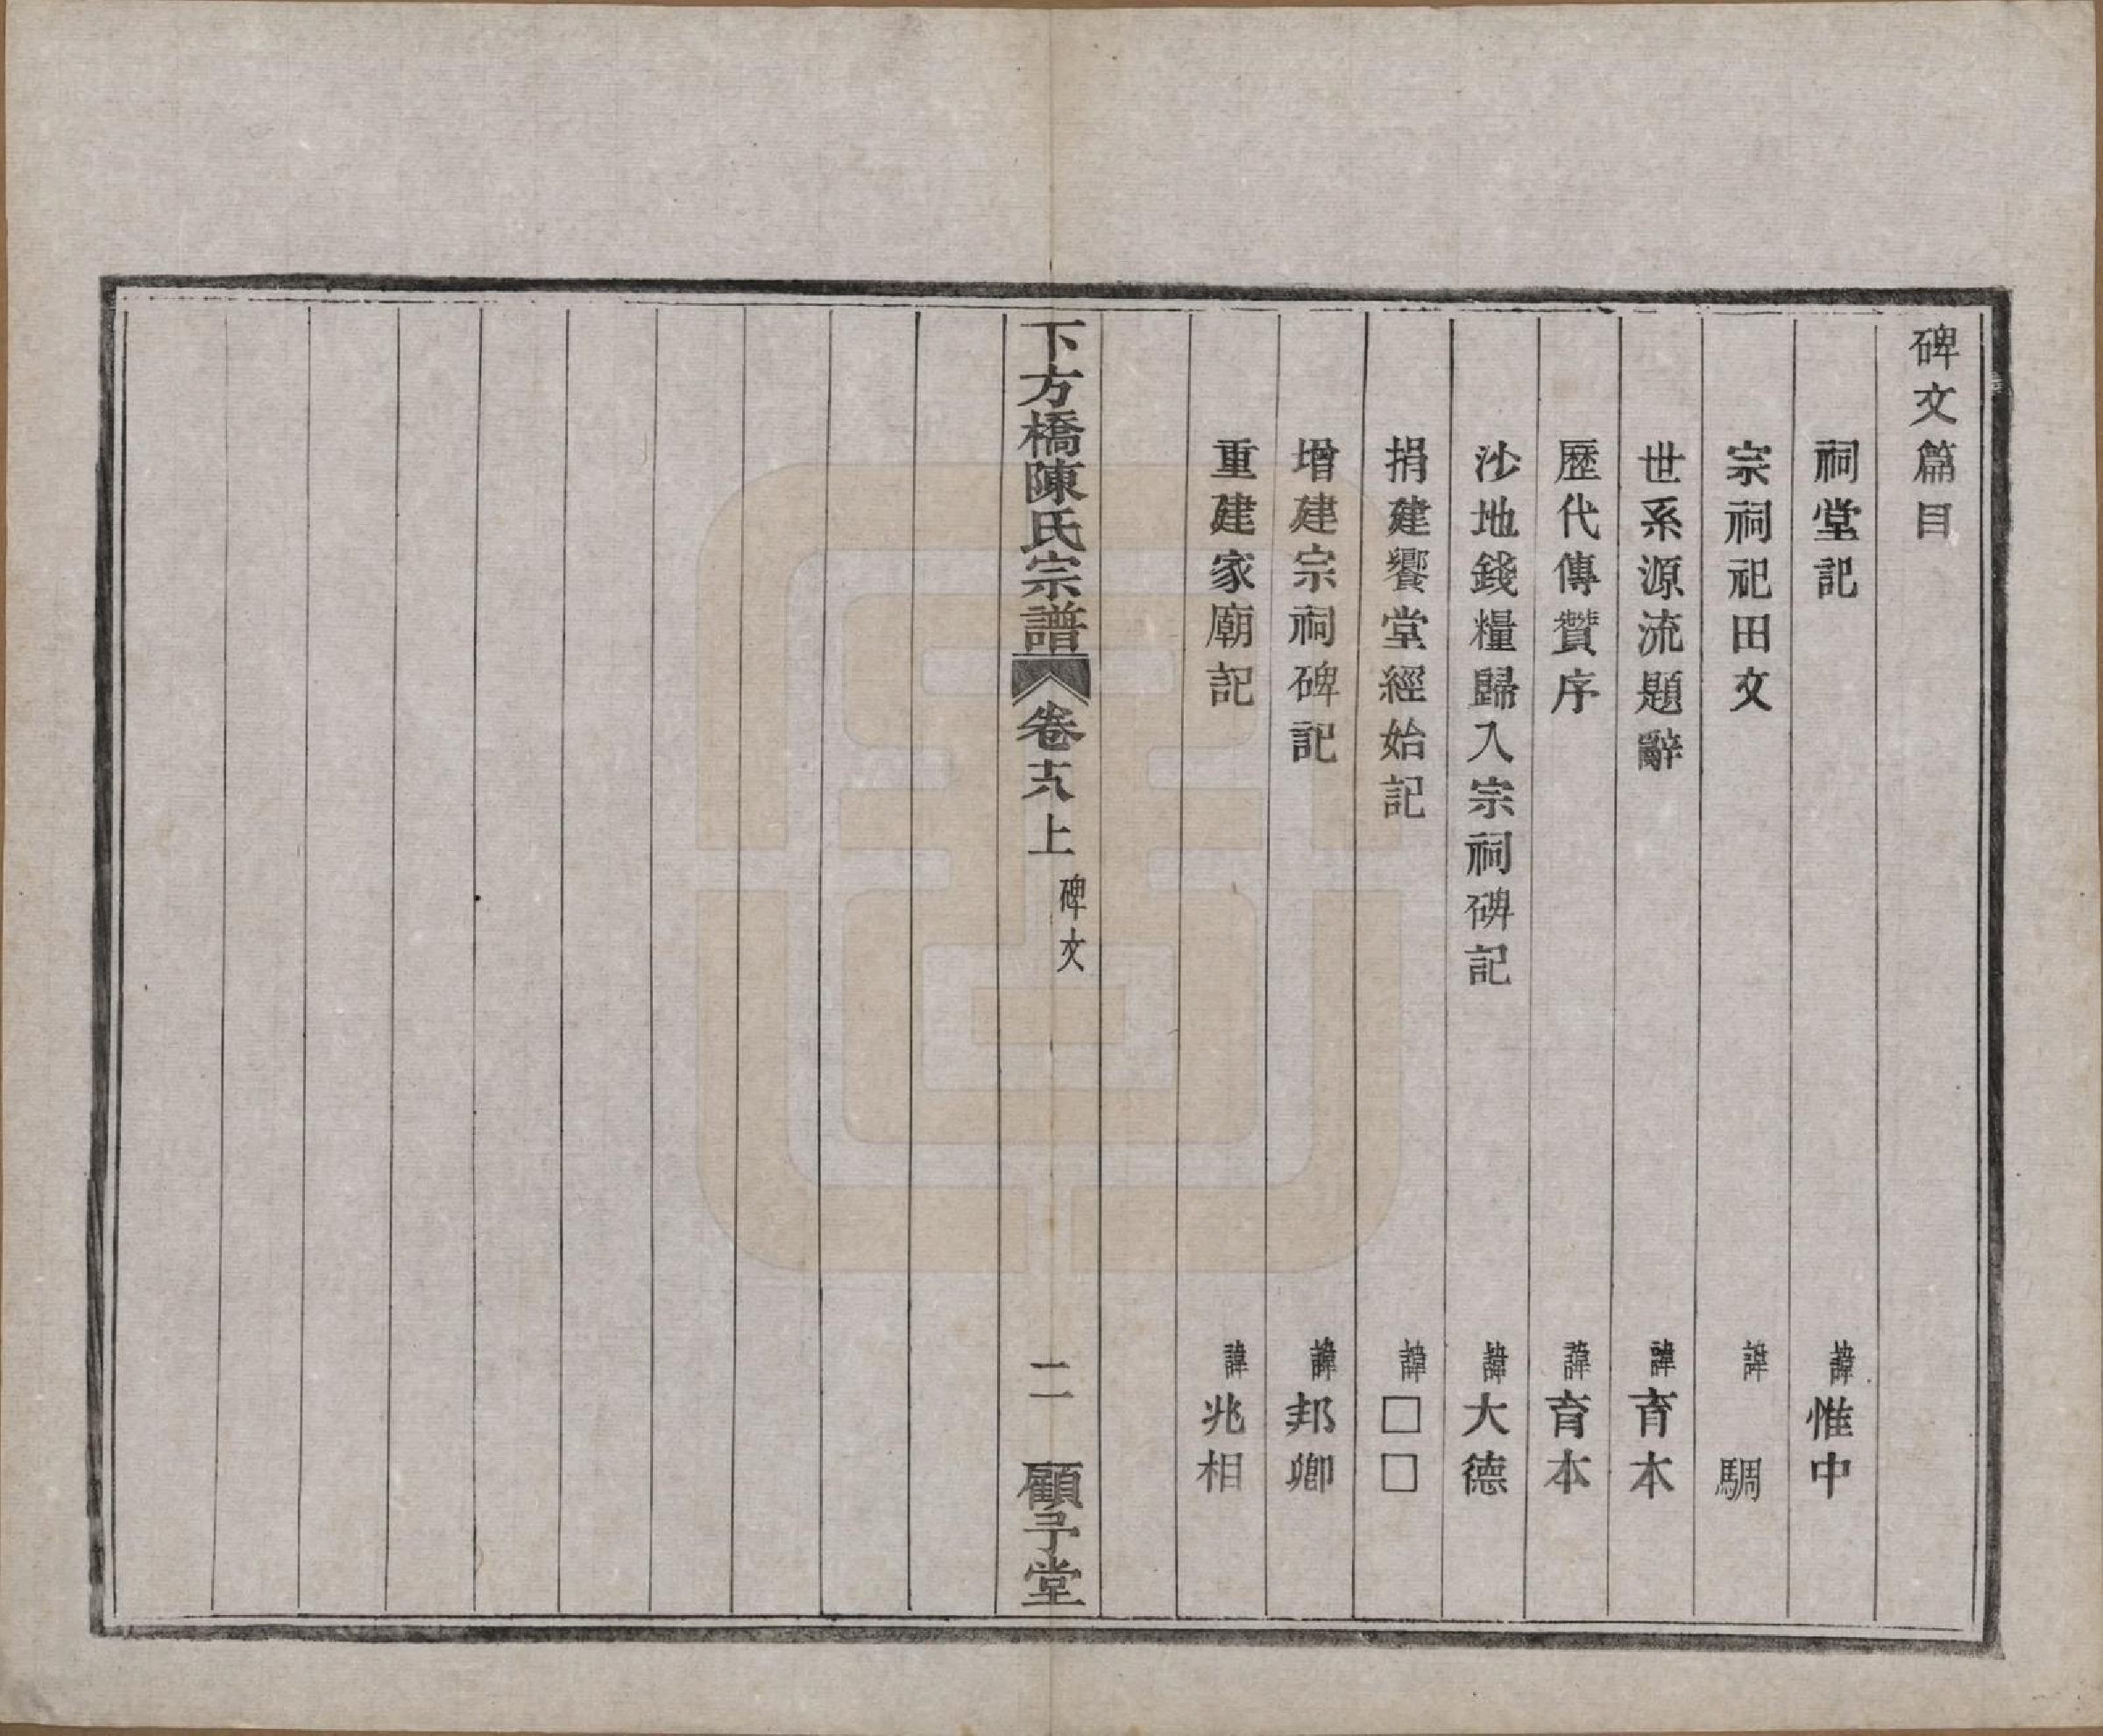 碑文篇目
祠堂記 諱惟中
宗祠祀田文 諱騆
世系源流題辭 諱育本
歷代傳贊序 諱育本
沙地錢糧歸入宗祠碑記 諱大德
捐建饗堂經始記 諱□□
增建宗祠碑記 諱邦卿
重建家廟記 諱兆相
下方橋陳氏宗譜 卷十八上 碑文 二 顧予堂